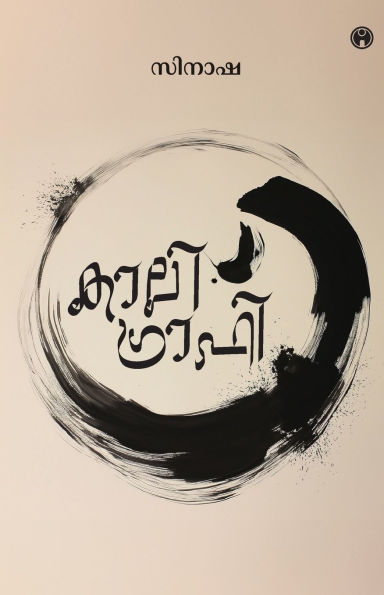 സിനാഷ
കാലി
ഗ്രാഫി